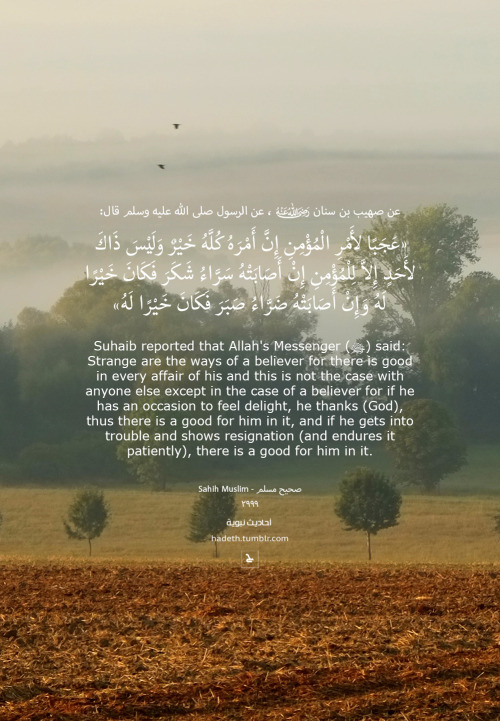 عن صهيب بن سنان رضي الله عنه ، عن الرسول صلى الله عليه وسلم قال:
«عَجَبًا لأَمْرِ الْمُؤْمِنِ إِنَّ أَمْرَهُ كُلَّهُ خَيْرٌ وَلَيْسَ ذَاكَ
لأَحَدٍ إِلاَّ لِلْمُؤْمِنِ إِنْ أَصَابَتْهُ سَرَّاءُ شَكَرَ فَكَانَ خَيْرًا
لَهُ وَإِنْ أَصَابَتْهُ ضَرَّاءُ صَبَرَ فَكَانَ خَيْرًا لَهُ»
Suhaib reported that Allah's Messenger (ﷺ) said:
Strange are the ways of a believer for there is good
in every affair of his and this is not the case with
anyone else except in the case of a believer for if he
has an occasion to feel delight, he thanks (God),
thus there is a good for him in it, and if he gets into
trouble and shows resignation (and endures it
patiently), there is a good for him in it.
Sahih Muslim - صحيح مسلم
٢٩٩٩
أحاديث نبوية
hadeth.tumblr.com